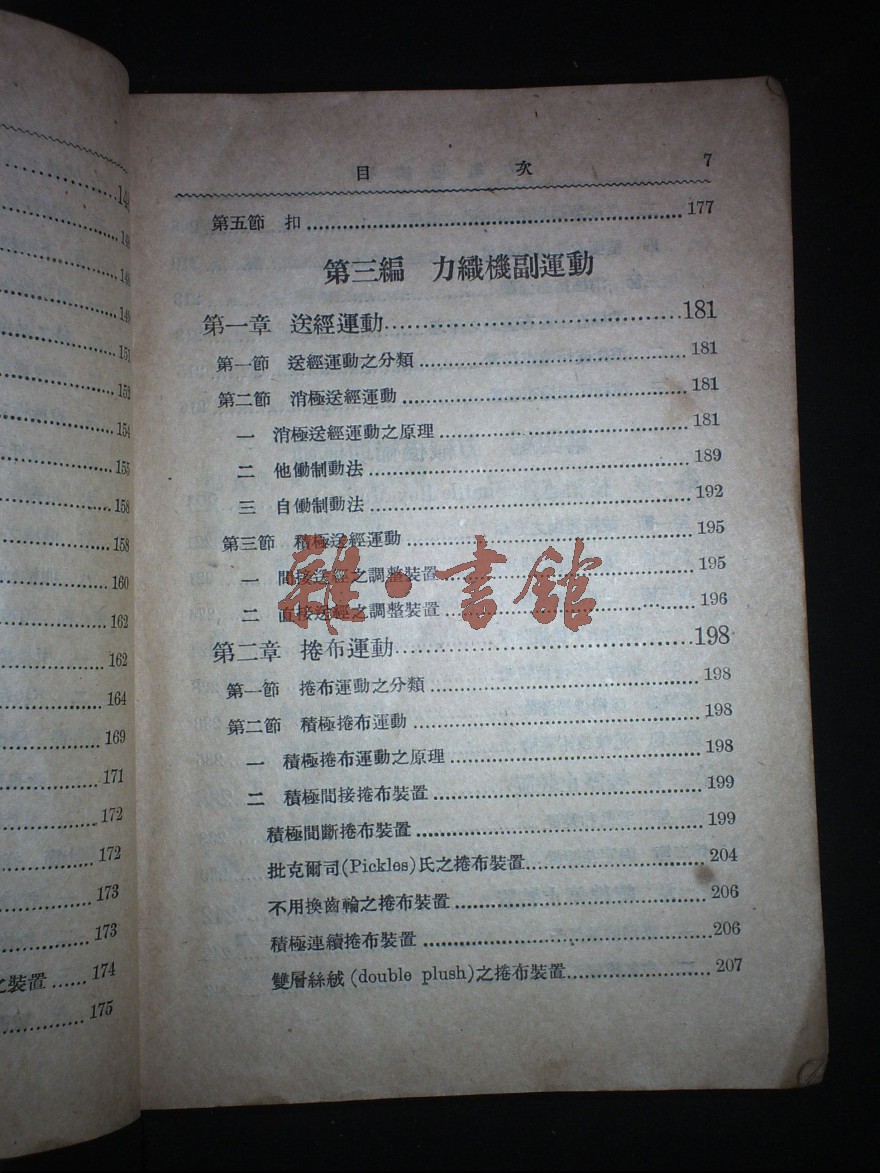 148
149
151
153
154
155
158
158
160
162
162
164
169
171
172
172
173
173
之裝置......174
175
目 次 7
第五節 扣......177
第三編 力織機副運動
第一章 送經運動......181
第一節 送經運動之分類......181
第二節 消極送經運動......181
一 消極送經運動之原理......181
二 他働制動法......189
三 自働制動法......192
第三節 積極送經運動......195
一 間接送經之調整裝置......195
二 直接送經之調整裝置......196
第二章 捲布運動......198
第一節 捲布運動之分類......198
第二節 積極捲布運動......198
一 積極捲布運動之原理......198
二 積極間接捲布裝置......199
積極間斷捲布裝置......199
批克爾司(Pickles)氏之捲布裝置......204
不用換齒輪之捲布裝置......206
積極連續捲布裝置......206
雙層絲絨(double plush)之捲布裝置......207
雜·書館